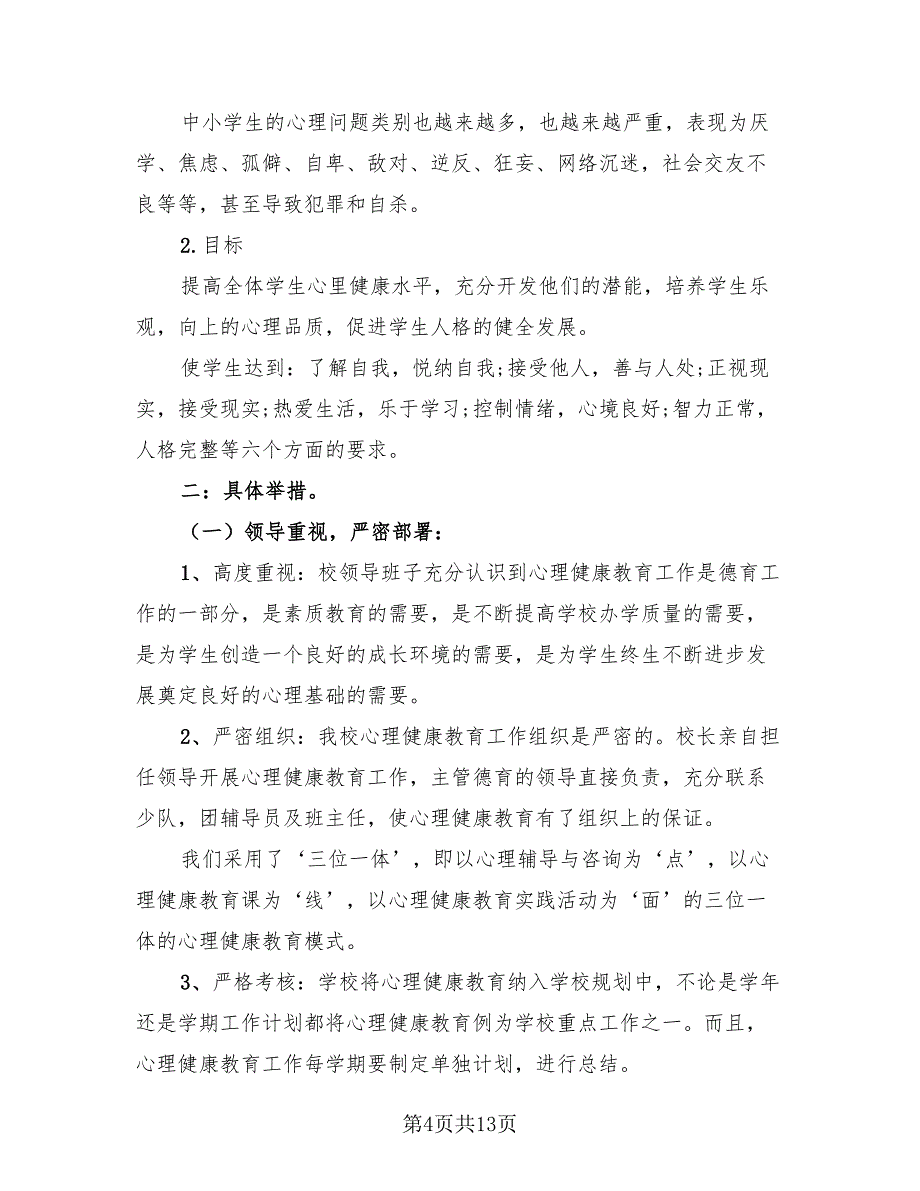 中小学生的心理问题类别也越来越多，也越来越严重，表现为厌
学、焦虑、孤僻、自卑、敌对、逆反、狂妄、网络沉迷，社会交友不
良等等，甚至导致犯罪和自杀。
2.目标
提高全体学生心里健康水平，充分开发他们的潜能，培养学生乐
观，向上的心理品质，促进学生人格的健全发展。
使学生达到：了解自我，悦纳自我;接受他人，善与人处;正视现
实，接受现实;热爱生活，乐于学习;控制情绪，心境良好;智力正常，
人格完整等六个方面的要求。
二：具体举措。
（一）领导重视，严密部署：
1、高度重视：校领导班子充分认识到心理健康教育工作是德育工
作的一部分，是素质教育的需要，是不断提高学校办学质量的需要，
是为学生创造一个良好的成长环境的需要，是为学生终生不断进步发
展奠定良好的心理基础的需要。
2、严密组织：我校心理健康教育工作组织是严密的。校长亲自担
任领导开展心理健康教育工作，主管德育的领导直接负责，充分联系
少队，团辅导员及班主任，使心理健康教育有了组织上的保证。
我们采用了‘三位一体’，即以心理辅导与咨询为‘点’，以心
理健康教育课为‘线’，以心理健康教育实践活动为‘面’的三位一
体的心理健康教育模式。
3、严格考核：学校将心理健康教育纳入学校规划中，不论是学年
还是学期工作计划都将心理健康教育例为学校重点工作之一。而且，
心理健康教育工作每学期要制定单独计划，进行总结。
第4页共13页